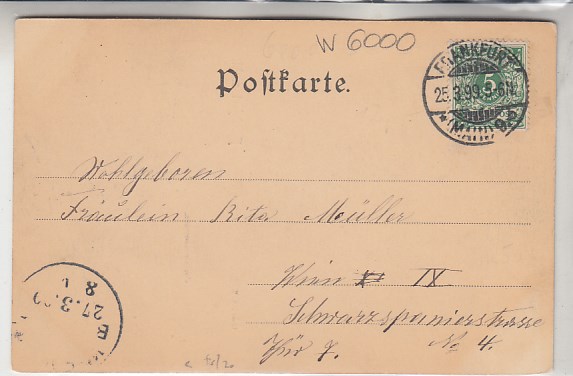 W 6000
Postkarte.
FRANKFURT
25.3.99.5-6N.
(MAIN) 9
5
Wohlgeboren
Fräulein Rita Müller
Wien IX
Schwarzspanierstrasse
Thür 7. No 4.
27.3.
8